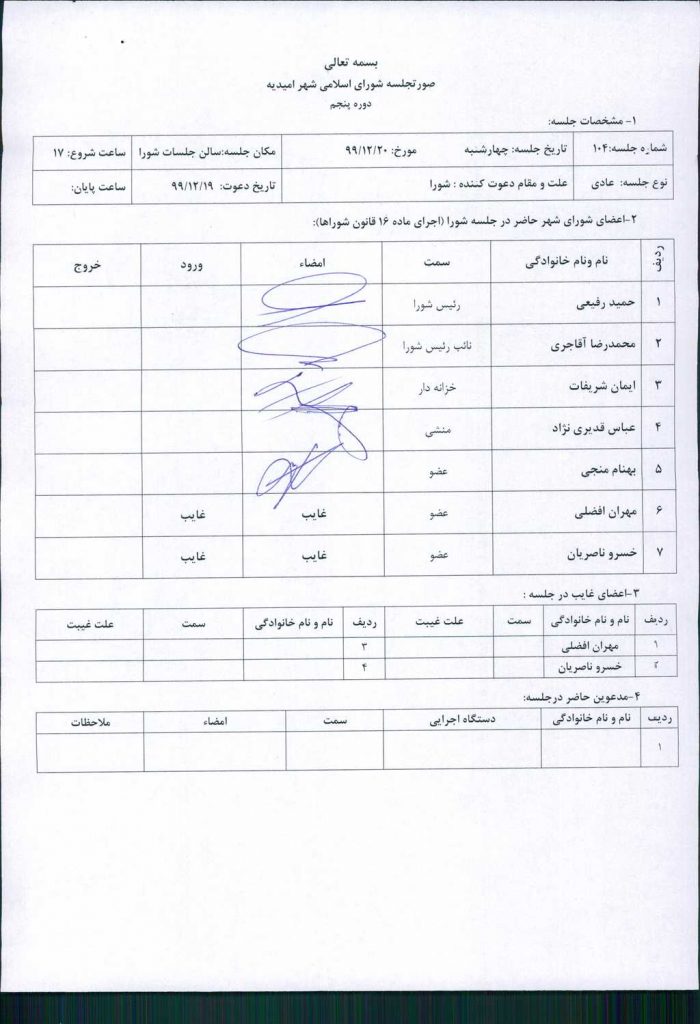 بسمه تعالی
صورتجلسه شورای اسلامی شهر امیدیه
دوره پنجم
۱- مشخصات جلسه:
شماره جلسه:۱۰۴ تاریخ جلسه: چهارشنبه مورخ: ۹۹/۱۲/۲۰ مکان جلسه:سالن جلسات شورا ساعت شروع: ۱۷
نوع جلسه: عادی علت و مقام دعوت کننده : شورا تاریخ دعوت: ۹۹/۱۲/۱۹ ساعت پایان:
۲-اعضای شورای شهر حاضر در جلسه شورا (اجرای ماده ۱۶ قانون شوراها):
ردیف نام ونام خانوادگی سمت امضاء ورود خروج
۱ حمید رفیعی رئیس شورا
۲ محمدرضا آقاجری نائب رئیس شورا
۳ ایمان شریفات خزانه دار
۴ عباس قدیری نژاد منشی
۵ بهنام منجی عضو
۶ مهران افضلی عضو غایب غایب
۷ خسرو ناصریان عضو غایب غایب
۳-اعضای غایب در جلسه :
ردیف نام و نام خانوادگی سمت علت غیبت ردیف نام و نام خانوادگی سمت علت غیبت
۱ مهران افضلی ۳
۲ خسرو ناصریان ۴
۴-مدعوین حاضر درجلسه:
ردیف نام و نام خانوادگی دستگاه اجرایی سمت امضاء ملاحظات
۱